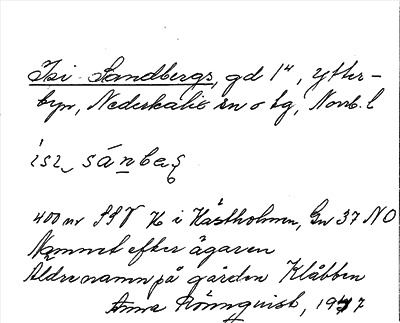 Isi-Sandbergs, gd 1⁴, Ytter-
byn, Nederkalix sn o tg, Norrb. l
400 m SSV K i Håstholmen, Gn 37 NO
Namnet efter ägaren
Äldre namn på gården Klåbben
Anna Rönnquist, 1947